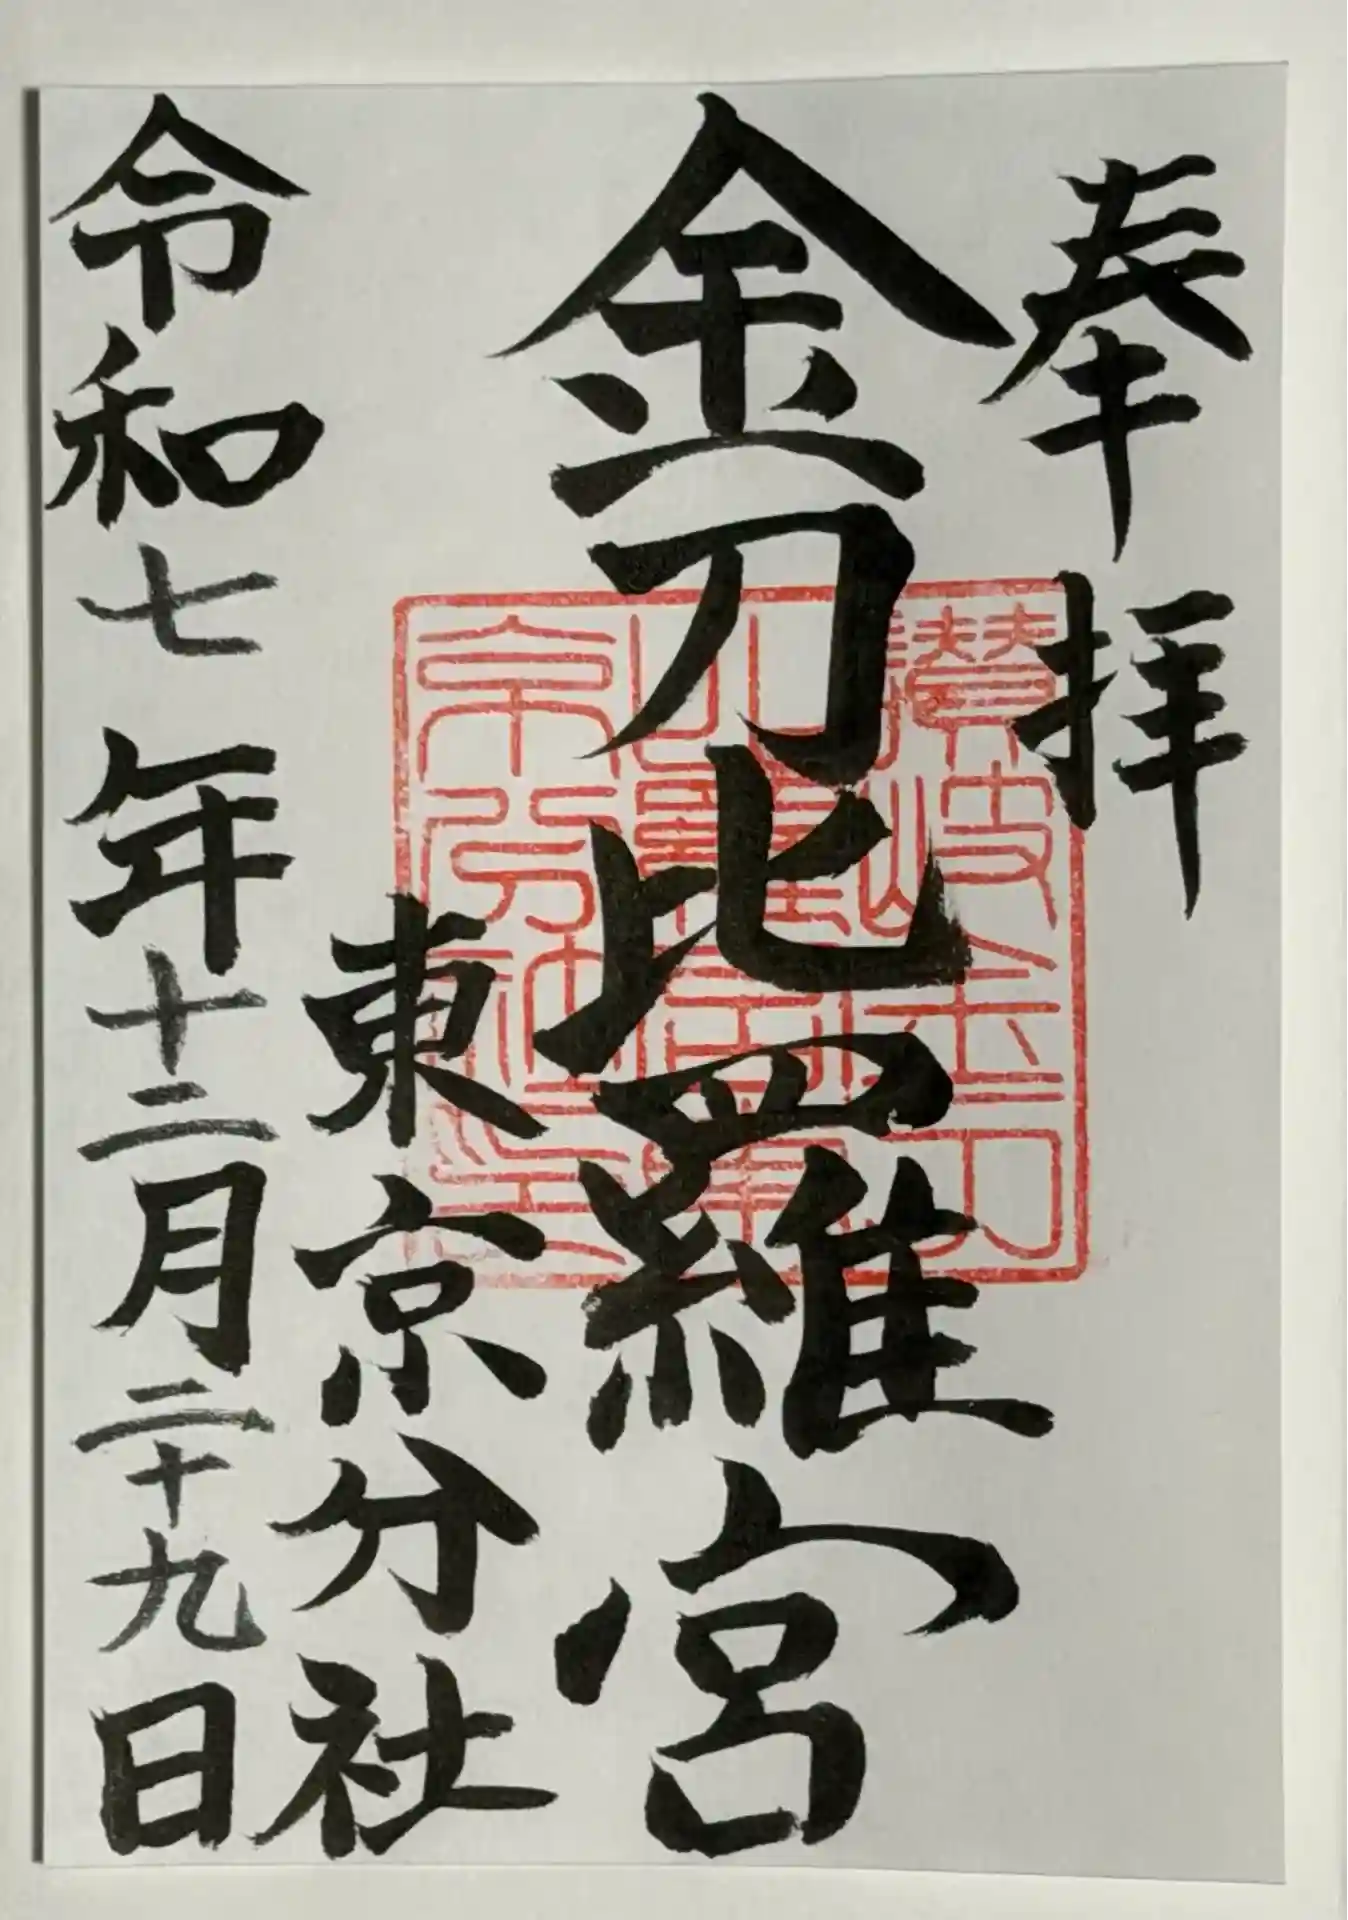 奉拝
金刀比羅宮
東京分社
令和七年十二月二十九日
讃岐金刀
比羅宮東
京分社印